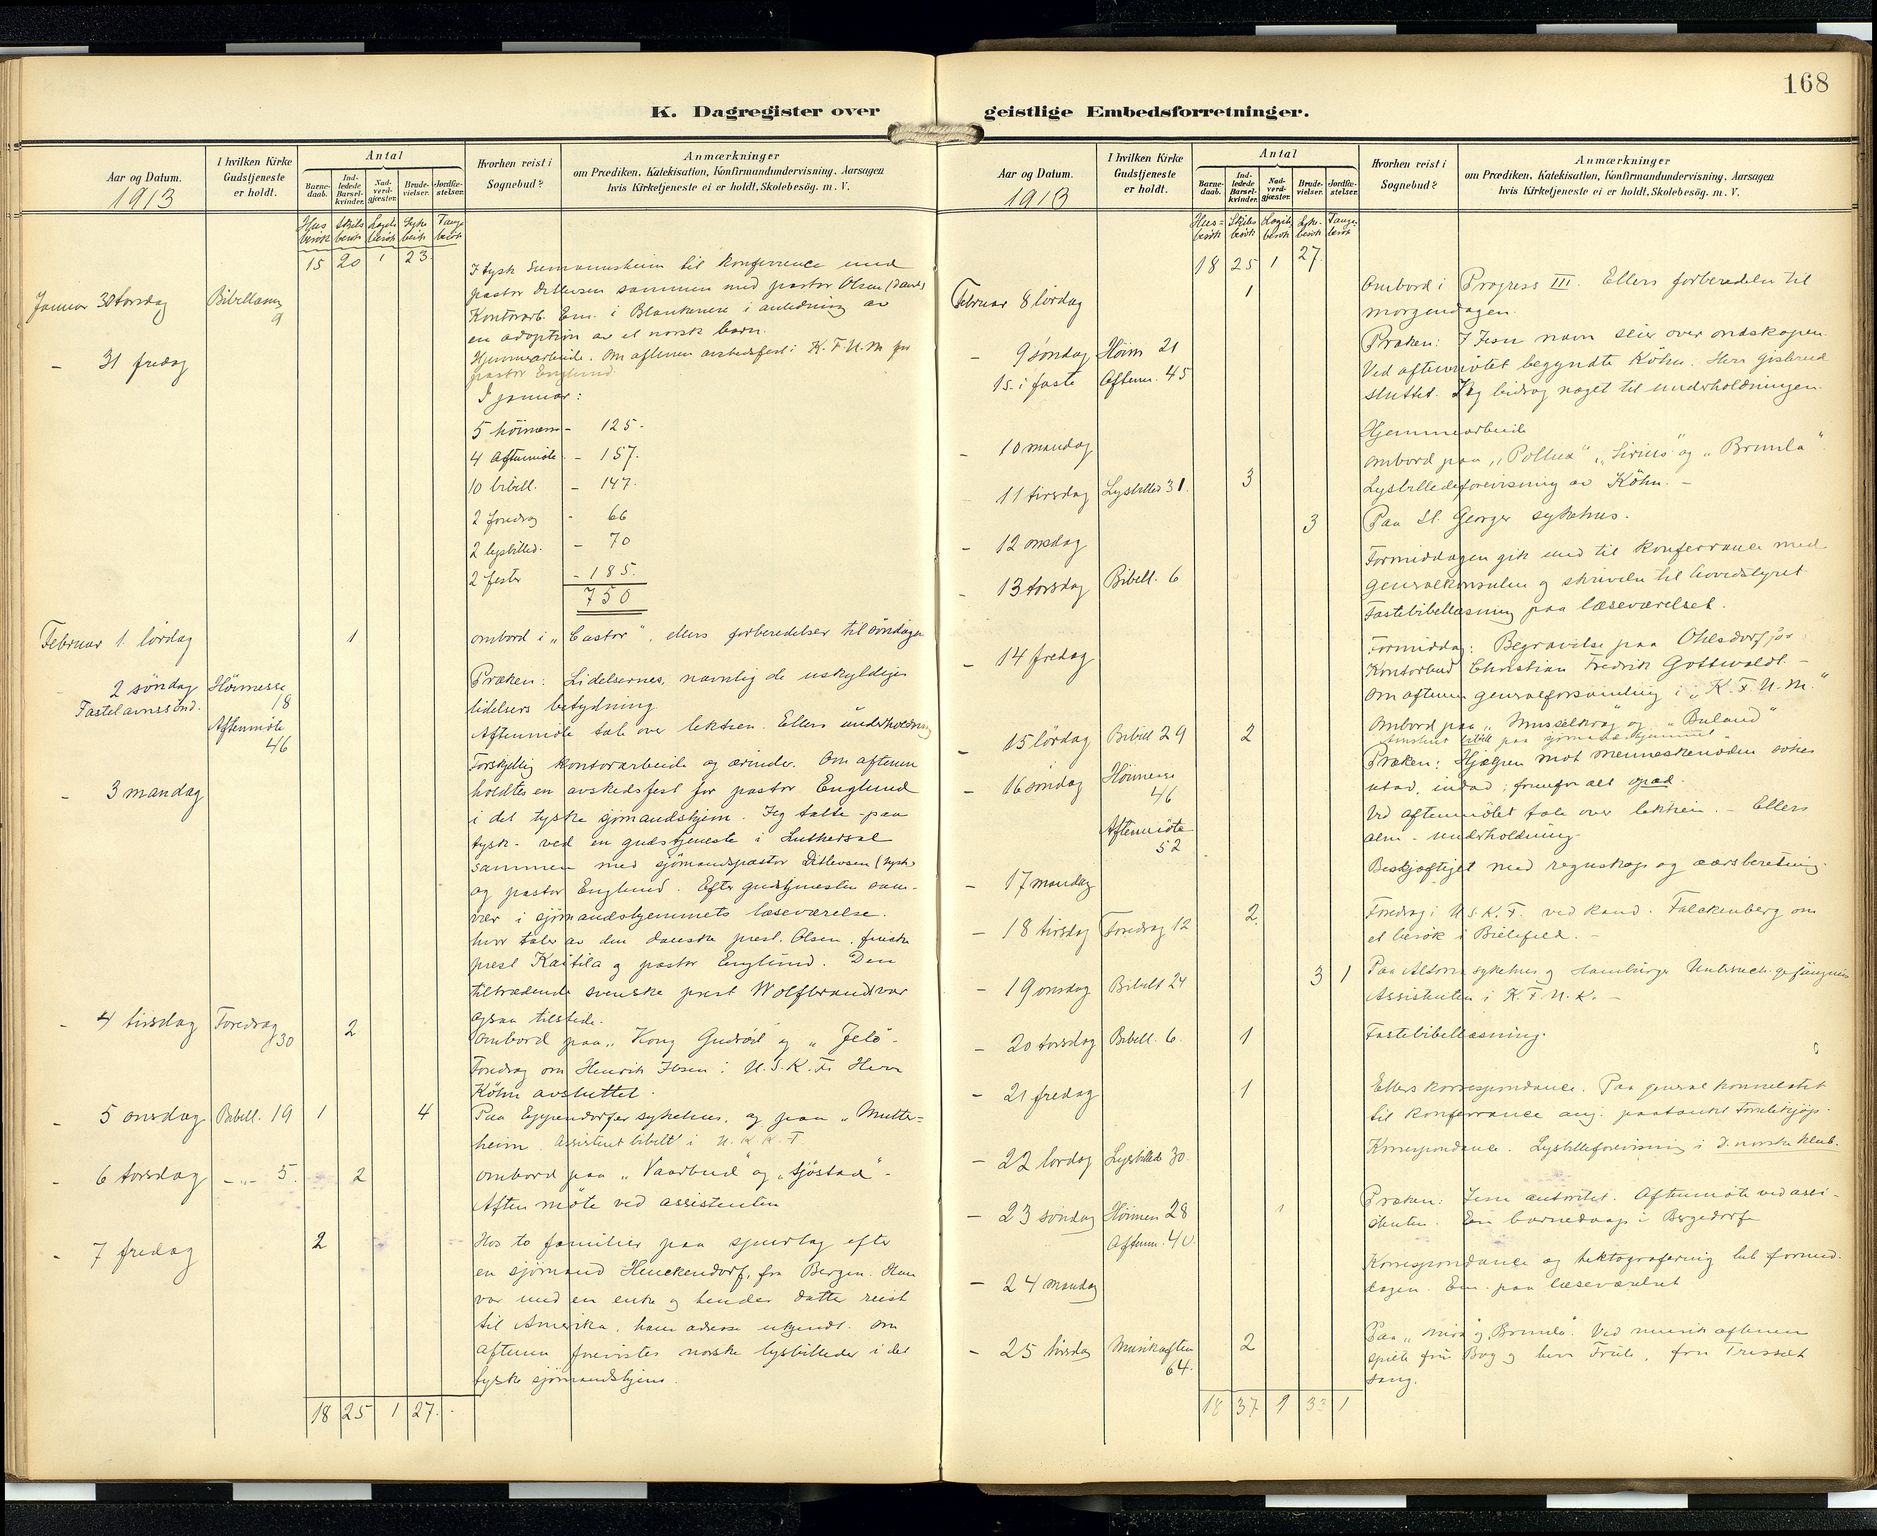 168
K. Dagregister over geistlige Embedsforretninger.
Aar og Datum.
1913
I hvilken Kirke Gudstjeneste er holdt.
Antal
Barnedaab.
Indledede Barselkvinder.
Nadverdgjæster.
Brudevielser.
Jordfæstelser.
Hvorhen reist i Sognebud?
Anmærkninger
om Prædiken, Katekisation, Konfirmandundervisning. Aarsagen
hvis Kirketjeneste ei er holdt, Skolebesøg. m. V.
Hus besøk
Skibs besøk
Syke besøk
Fange besøk
15 20 1 23
Januar 30 torsdag
9
I tysk Seemannsheim til konferance med
pastor Ditlevsen sammen med pastor Olsen (Dansk)
Kontorarb. Em. i Blankenese i anledning av
en adoption av et norsk barn.
- 31 fredag
Hjemmearbeide. Om aftenen avskedsfest i K.F.U.M. for
pastor Englund
I januar:
5 höimesse - 125.
4 Aftenmöte - 157.
10 bibell. - 147.
2 foredrag - 66
2 lysbilled. - 70
2 fester - 185.
750
Februar 1. lördag 1
ombord i „Castor", ellers forberedelser til söndagen
2 söndag Höimesse
Fastelavnssönd. 18
Aftenmöte
46
Præken: Lidelsernes, navnlig de uskyldiges
lidelsers betydning
Aftenmöte tale over lektien. Ellers underholdning
- 3 mandag
Forskjellig kontorarbeide og ærinder. Om aftenen
holdtes en avskedsfest for pastor Englund
i det tyske sjömandshjem. Jeg talte paa
tysk. ved en gudstjeneste i Luthersal
sammen med sjömandspastor Ditlevsen (tysk)
og pastor Englund. Efter gudstjenesten sam-
vær i sjömandshjemmets læseværelse.
hvor taler av den danske prest. Olsen. finske
prest Kaitila og pastor Englund. Den
tiltrædende svenske prest Wolfbrand var
ogsaa tilstede.
- 4 tirsdag Foredrag 30 2
Ombord paa „Kong Gudröd" og „Jelö".
Foredrag om Henrik Ibsen i U.S.K.F. Herr
Köhn avsluttet.
- 5 onsdag Bibell. 19 1 4
Paa Eppendorfer sykehus, og paa „Mutter-
heim. Assistent bibell i U.K.K.F.
- 6 torsdag -„- 5. 2
ombord paa „Vaarbud" og „Sjöstad".
Aften möte ved assistenten
- 7 fredag 2
Hos to familier paa spurlag efter
en sjömand Henckendorf, fra Bergen. Han
var med en enke og hendes datter reist
til Amerika, hans adresse ukjendt. Om
aftenen forevistes norske lysbilleder i det
tyske sjömandshjem.
18 25 1 27.
Aar og Datum.
1913
I hvilken Kirke Gudstjeneste er holdt.
Antal
Barnedaab.
Indledede Barselkvinder.
Nadverdgjæster.
Brudevielser.
Jordfæstelser.
Hvorhen reist i Sognebud?
Anmærkninger
om Prædiken, Katekisation, Konfirmandundervisning. Aarsagen
hvis Kirketjeneste ei er holdt, Skolebesøg. m. V.
Hus-besøk
Skibs besøk
Syke-besøk
Fange-besøk
18 25 1 27.
Februar 8 lördag 1
Ombord i Progress III. Ellers forberedelse til
morgendagen.
- 9 söndag Höim 21
1 S. i faste Aftenm. 45
Præken: I Jesu navn seier over ondskapen.
Ved aftenmötet begyndte Köhn. Herr Gisbrud
sluttet. Jeg bidrog noget til underholdningen.
- 10 mandag
Hjemmearbeide
- 11 tirsdag Lysbilled 31. 3
ombord paa „Pollux" „Sirius" og „Brunla".
Lysbilledeforevisning av Köhn. -
- 12 onsdag 3
Paa St. Georger sykehus.
- 13 torsdag Bibell. 6
Formiddagen gik med til konferance med
generalkonsulen og skrivelse til hovedstyret
Fastebibellæsning paa læseværelset.
- 14 fredag
Formiddag: Begravelse paa Ohlsdorf for
Kontorbud Christian Fredrik Gottwaldt. -
Om aftenen generalforsamling i „K.F.U.M."
- 15 lördag Bibell 29 2
Ombord paa „Musselkrag" og „Buland"
Assistent bibell paa sjömandshjemmet
- 16 söndag Höimesse
46
Aftenmöte
52
Præken: Hjælpen mot menneskenöden sökes
utad, indad; fremfor alt opad.
Ved aftenmötet tale over lektien. - Ellers
alm. underholdning
- 17 mandag
Beskjæftiget med regnskap og aarsberetning.
- 18 tirsdag Foredrag 12 2
Foredrag i U.S.K.F. ved kand. Falckenberg om
et besök i Bielefeld. -
- 19 onsdag Bibell 24 3 1
Paa Altona sykehus og Hamburger Untersuch.gefängnis
Assistenten i K.F.U.K. -
- 20 torsdag Bibell. 6 1
Fastebibellæsning.
- 21 fredag 1
Ellers korrespondance. Paa general konsulatet
til konferance ang. paatænkt Tomtekjöp.
- 22 lördag Lysbilled 30.
Korrespondance. Lysbilleforevisning i D. norske klub.
- 23 söndag Höimes 28 1
Aftenm. 40.
Præken: Jesu autoritet. Aftenmöte ved assi-
stenten. En barnedaap i Bergedorf
- 24 mandag
Korrespondance og hektografering hel formid-
dagen. Em. paa læseværelset
- 25 tirsdag Musikaften 2
64
Paa „Mira" og „Brunla". Ved musik aftenen
sang.
18 37 1 33 1